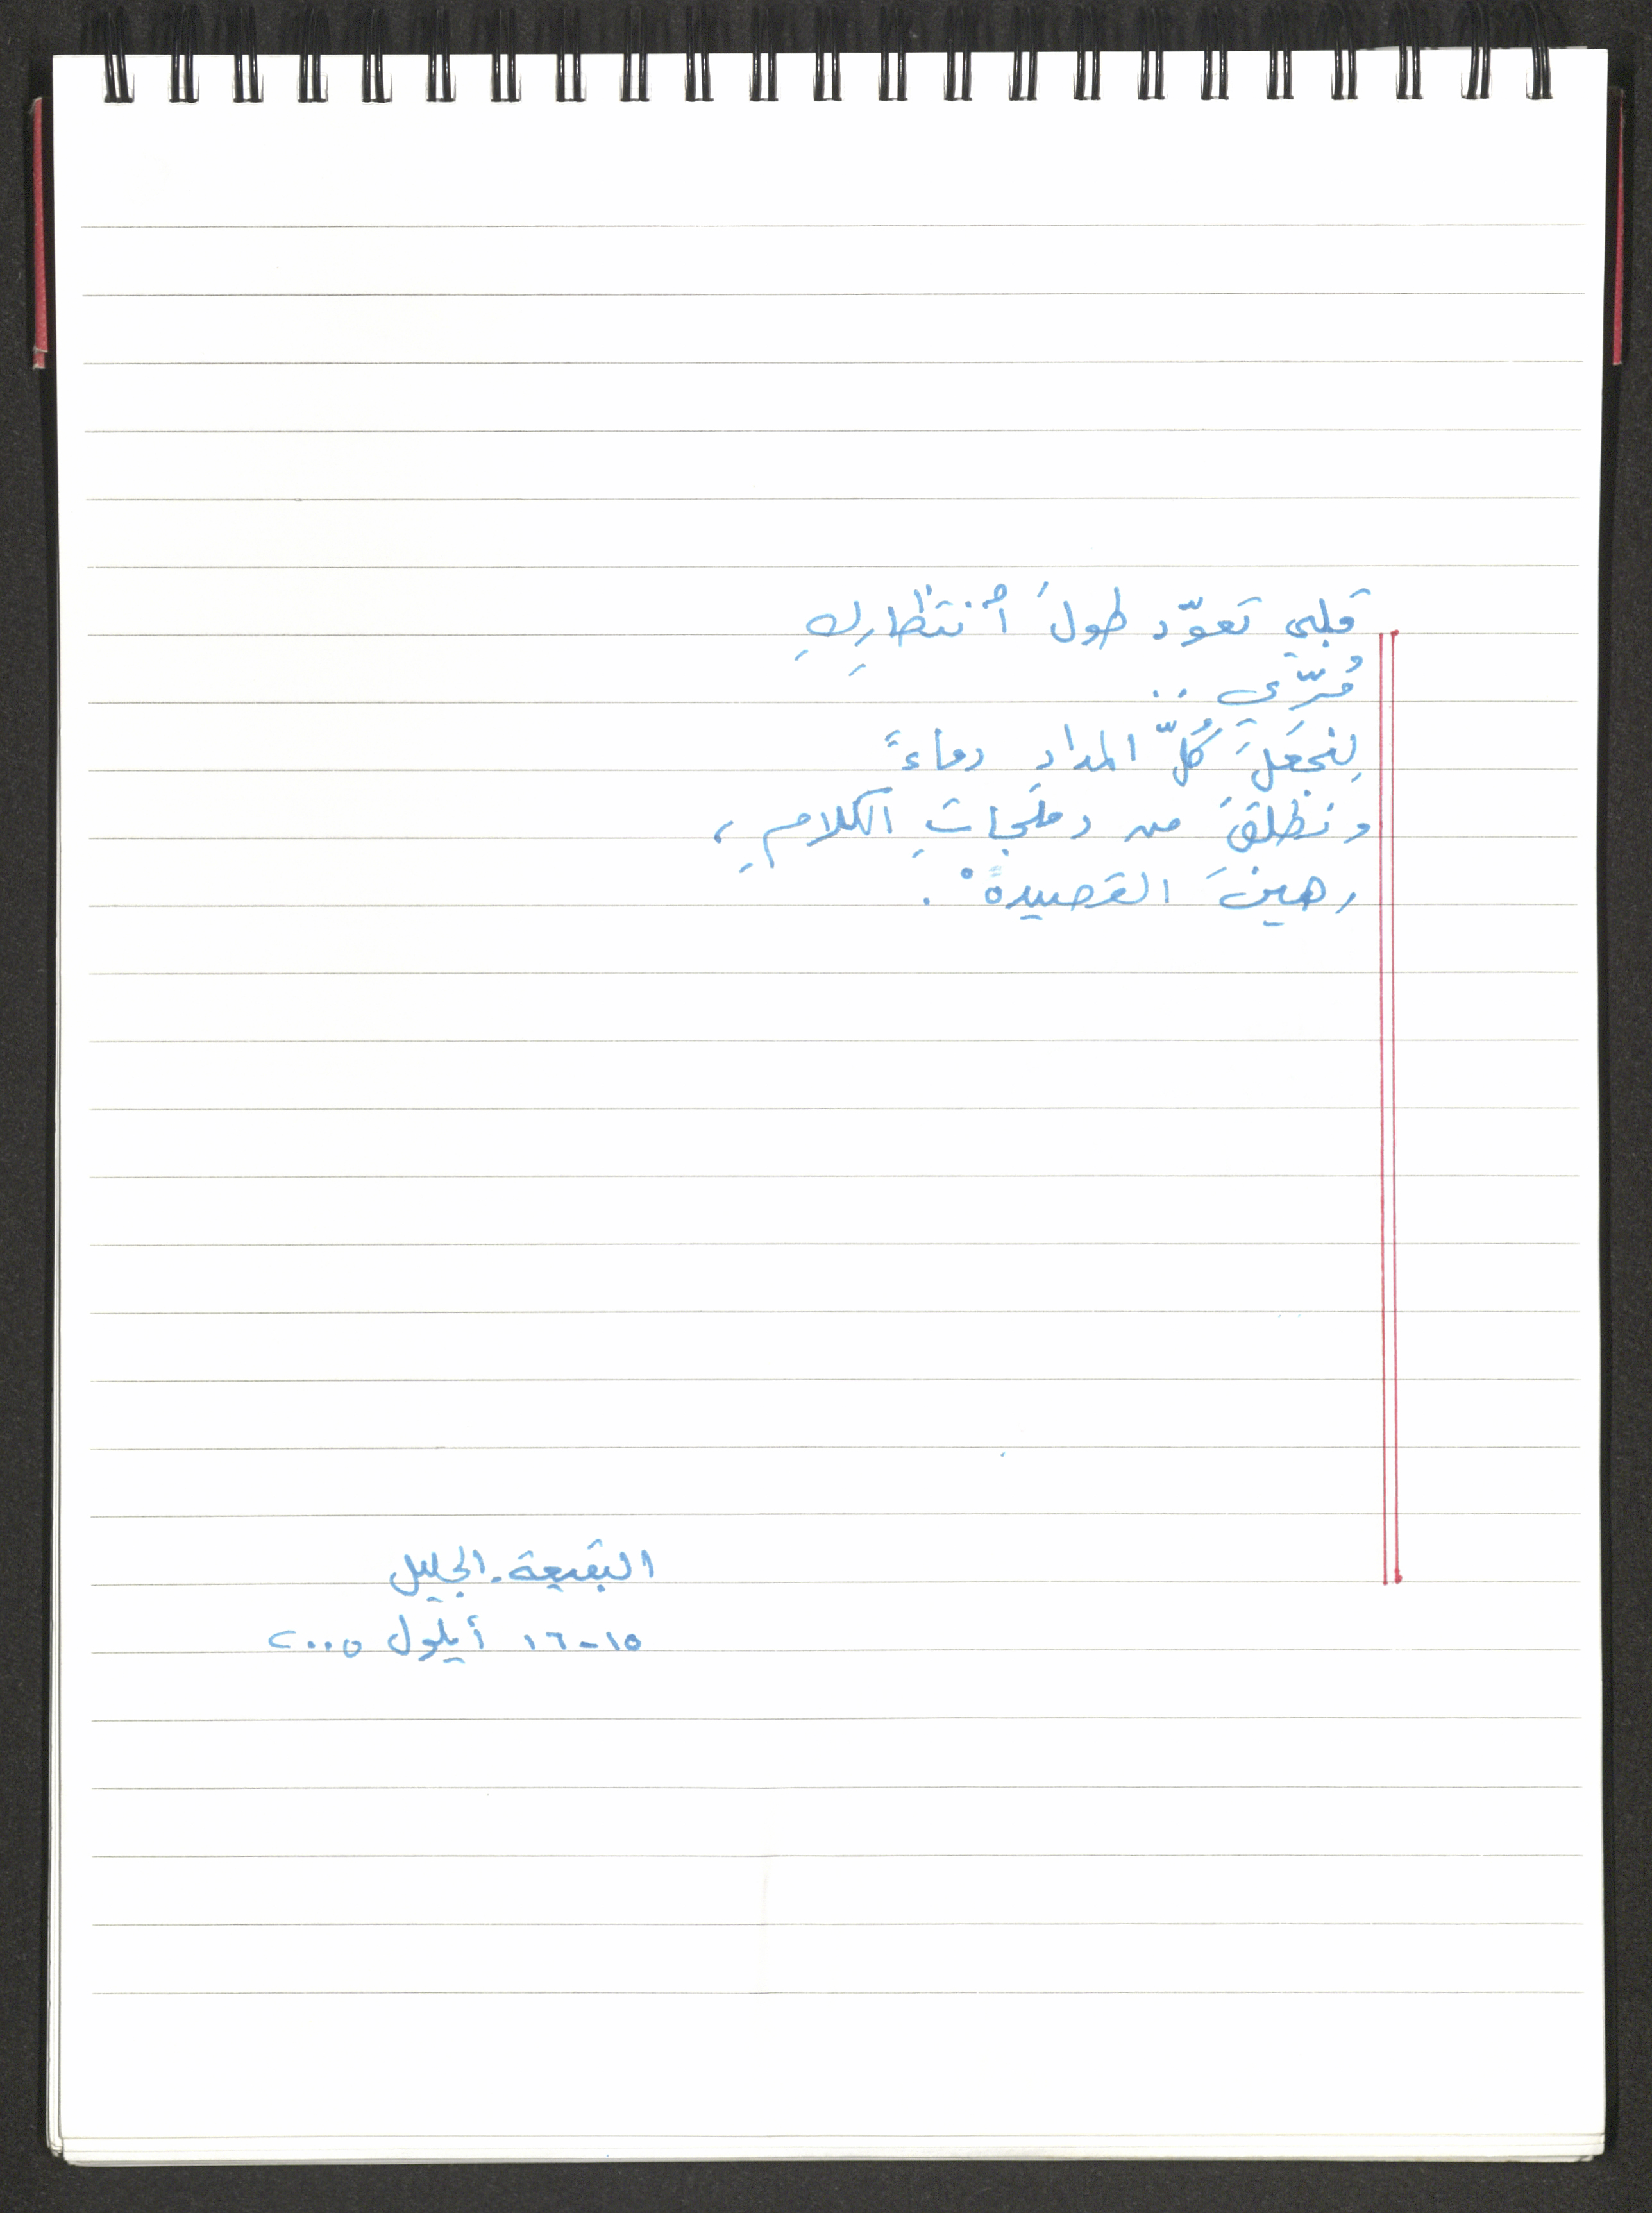 قلبي تعوّد طولَ اُنتظارِكِ
مُرّي ..
لِنجعَلَ كُلّ المداد دماءً
ونطلقَ من دملجات الكلامِ،
رهينَ القصيدةْ.
البقيعة - الجليل
١٥-١٦ أيلول ٢٠٠٥